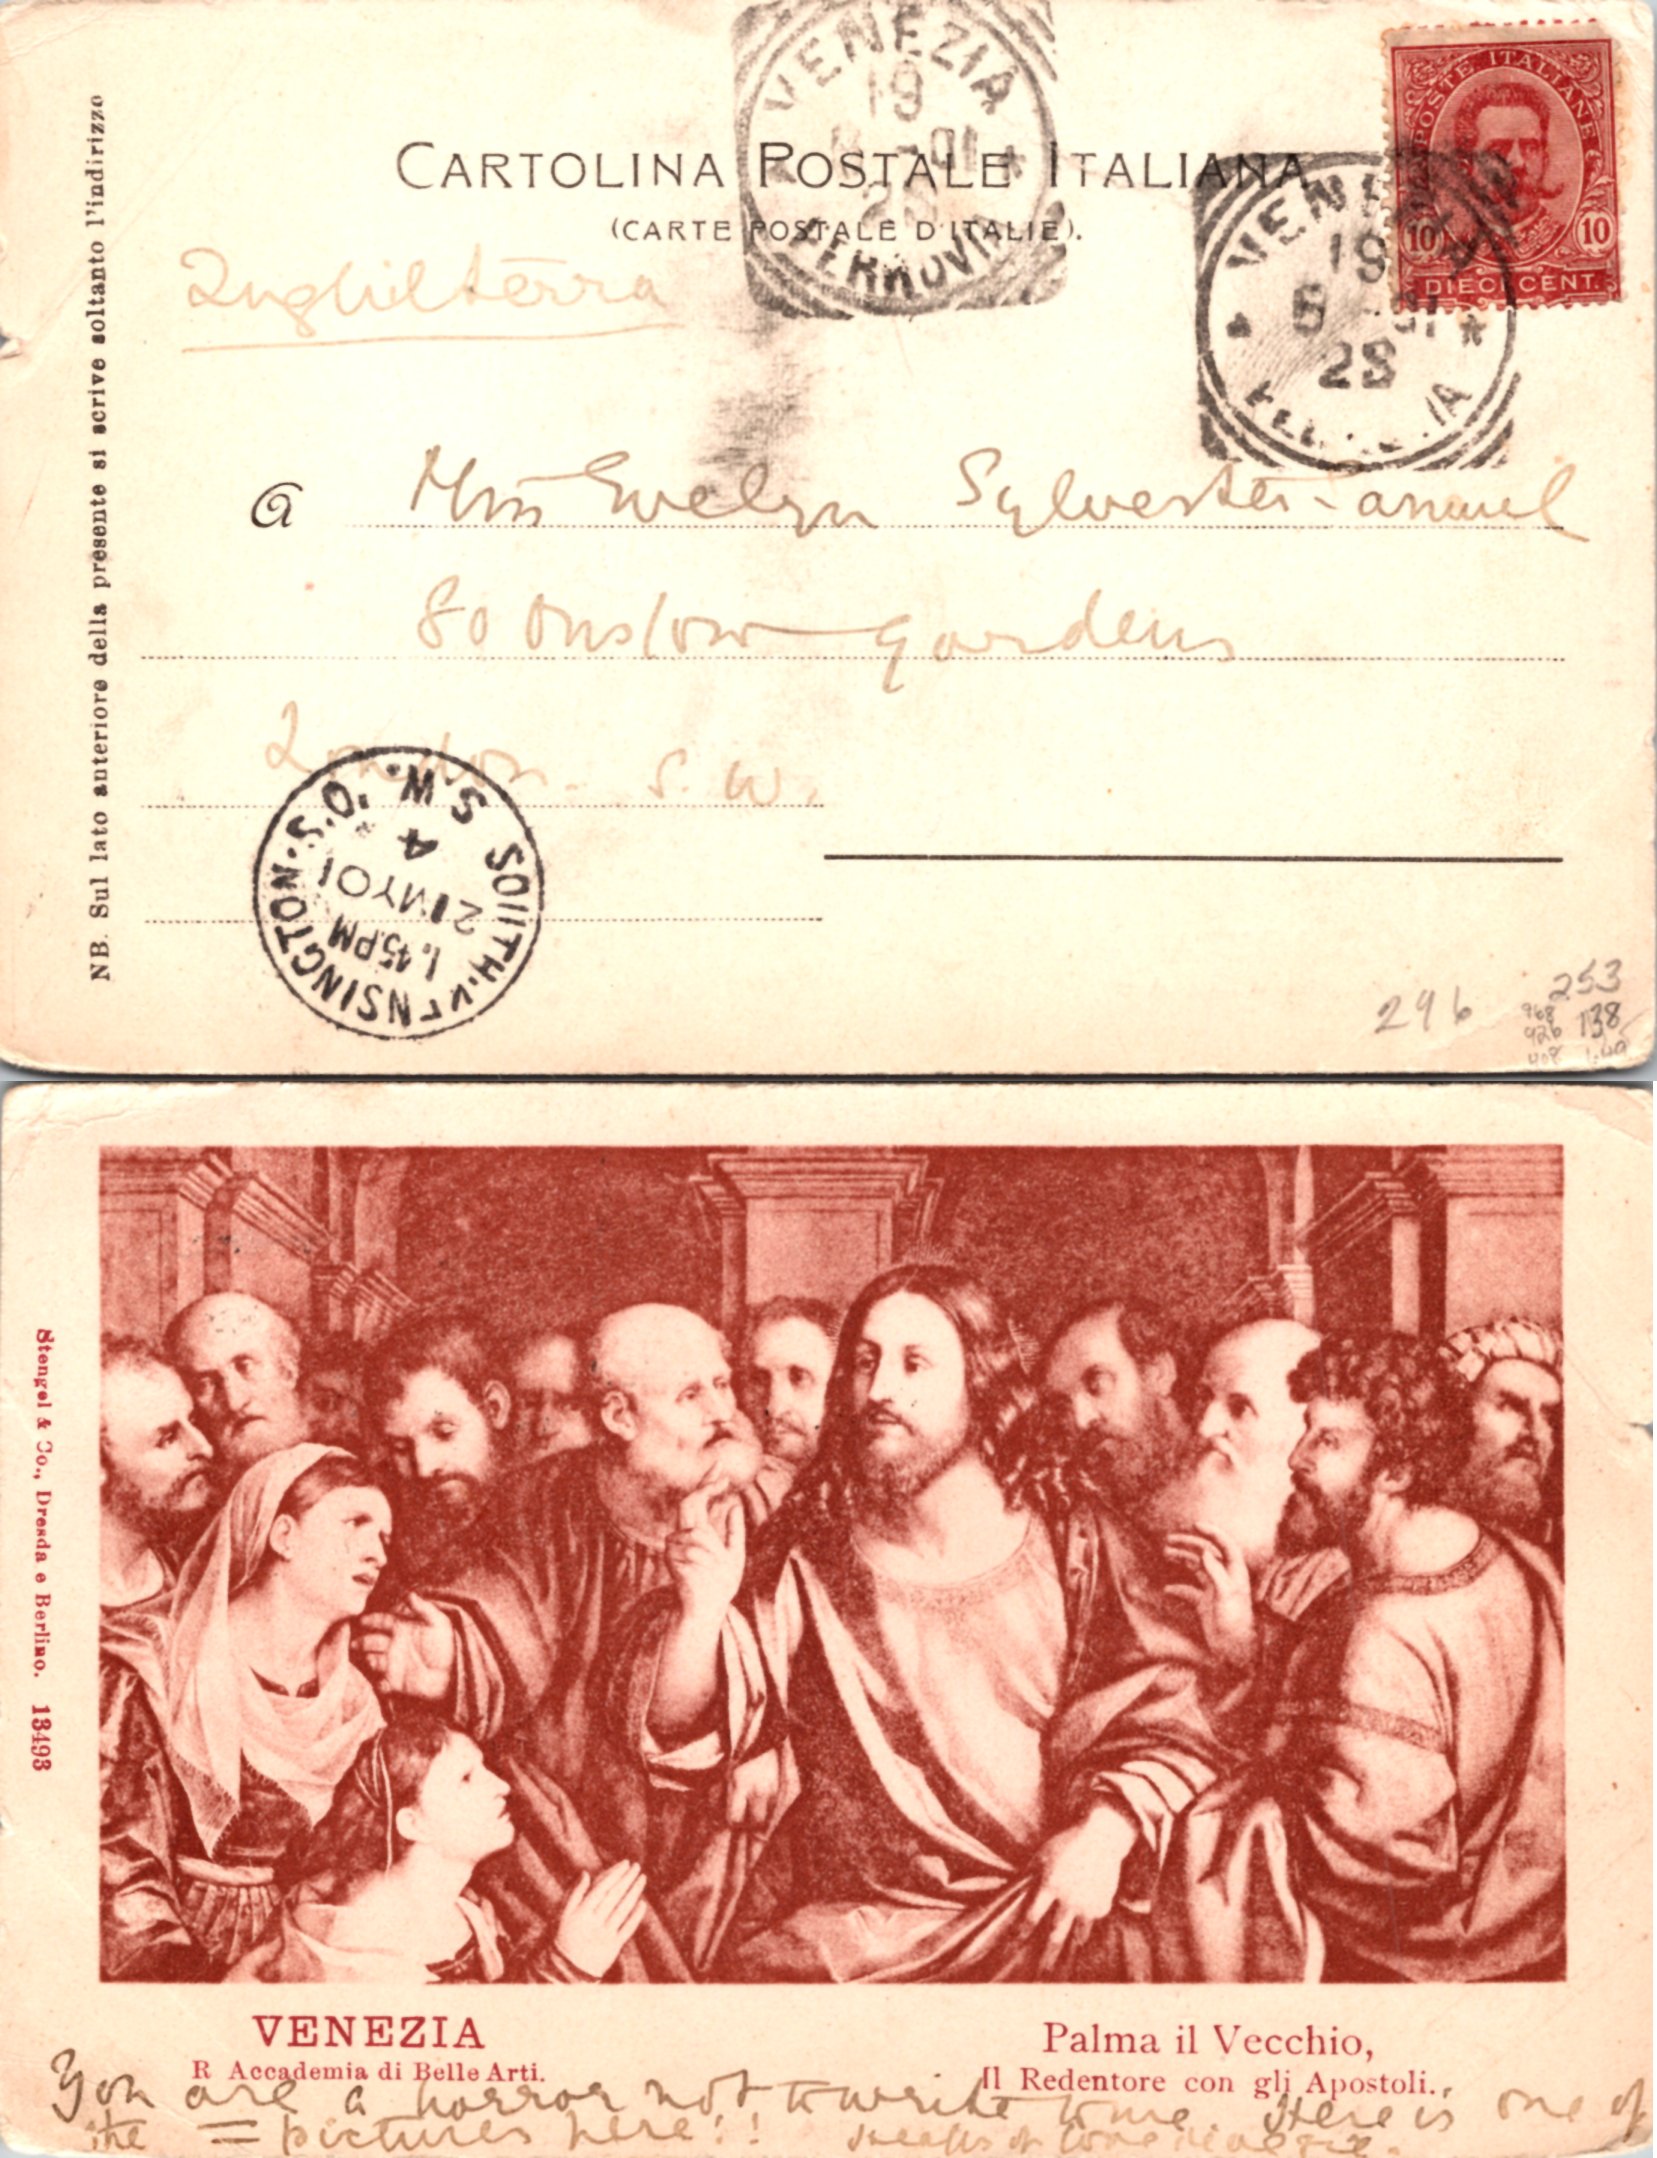 VENEZIA
19
-01
23
FERROVIA
POSTE ITALIANE
10 10
DIECI CENT.
CARTOLINA POSTALE ITALIANA
(CARTE POSTALE D'ITALIE).
VENEZIA
19
5 -01
23
Inghilterra
NB. Sul lato anteriore della presente si scrive soltanto l'indirizzo
a Miss Evelyn Sylvester-Samuel
80 Onslow Gardens
London. S. W.
SOUTH.KENSINGTON.S.O. S.W.
4
21 MY 01
1.45PM
296 253
968 138
926
Stengel & Co., Dresda e Berlino. 13493
VENEZIA
R Accademia di Belle Arti.
Palma il Vecchio,
Il Redentore con gli Apostoli.
You are a horror not to write to me. Here is one of
the = pictures here!! love